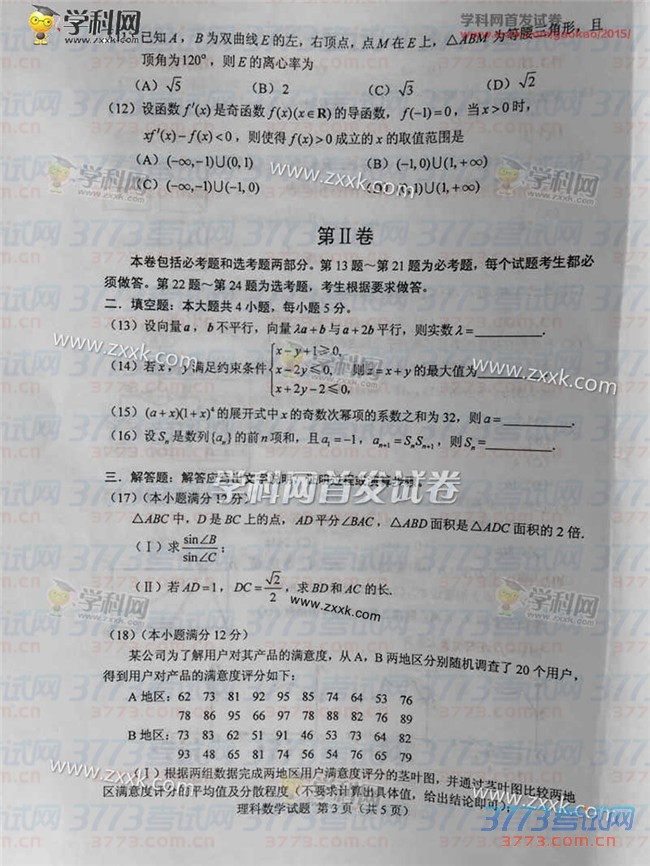 学科网 学科网首发试卷
已知A，B为双曲线E的左，右顶点，点M在E上，△ABM为等腰三角形，且
顶角为120°，则E的离心率为
（A）√5 （B）2 （C）√3 （D）√2
（12）设函数f′(x)是奇函数f(x)(x∈R)的导函数，f(−1)=0，当x>0时，
xf′(x)−f(x)<0，则使得f(x)>0成立的x的取值范围是
（A）(−∞,−1)∪(0,1) （B）(−1,0)∪(1,+∞)
（C）(−∞,−1)∪(−1,0) 1)∪(1,+∞)
学科网
www.zxxk.com
第Ⅱ卷
本卷包括必考题和选考题两部分。第13题～第21题为必考题，每个试题考生都必
须做答。第22题～第24题为选考题，考生根据要求做答。
二．填空题：本大题共4小题，每小题5分。
（13）设向量a，b不平行，向量λa+b与a+2b平行，则实数λ=________．
（14）若x，y满足约束条件{x−y+1≥0, x−2y≤0, x+2y−2≤0, 则z=x+y的最大值为________
www.zxxk.com 学科网 www.zxxk.com
（15）(a+x)(1+x)⁴的展开式中x的奇数次幂项的系数之和为32，则a=________．
（16）设Sₙ是数列{aₙ}的前n项和，且a₁=−1，aₙ₊₁=SₙSₙ₊₁，则Sₙ=________．
三．解答题：解答应
学科网首发试卷
（17）（本小题满分12分）
△ABC中，D是BC上的点，AD平分∠BAC，△ABD面积是△ADC面积的2倍．
（Ⅰ）求sin∠B/sin∠C；
（Ⅱ）若AD=1，DC=√2/2，求BD和AC的长．
学科网 www.zxxk.com 学科网
（18）（本小题满分12分）
某公司为了解用户对其产品的满意度，从A，B两地区分别随机调查了20个用户，
得到用户对产品的满意度评分如下：
A地区：62 73 81 92 95 85 74 64 53 76
78 86 95 66 97 78 88 82 76 89
B地区：73 83 62 51 91 46 53 73 64 82
93 48 65 81 74 56 54 76 65 79
www.zxxk.com
（Ⅰ）根据两组数据完成两地区用户满意度评分的茎叶图，并通过茎叶图比较两地
区满意度评分的平均值及分散程度（不要求计算出具体值，给出结论即可）；
理科数学试题 第3页（共5页）
3773考试网
3773.com.cn